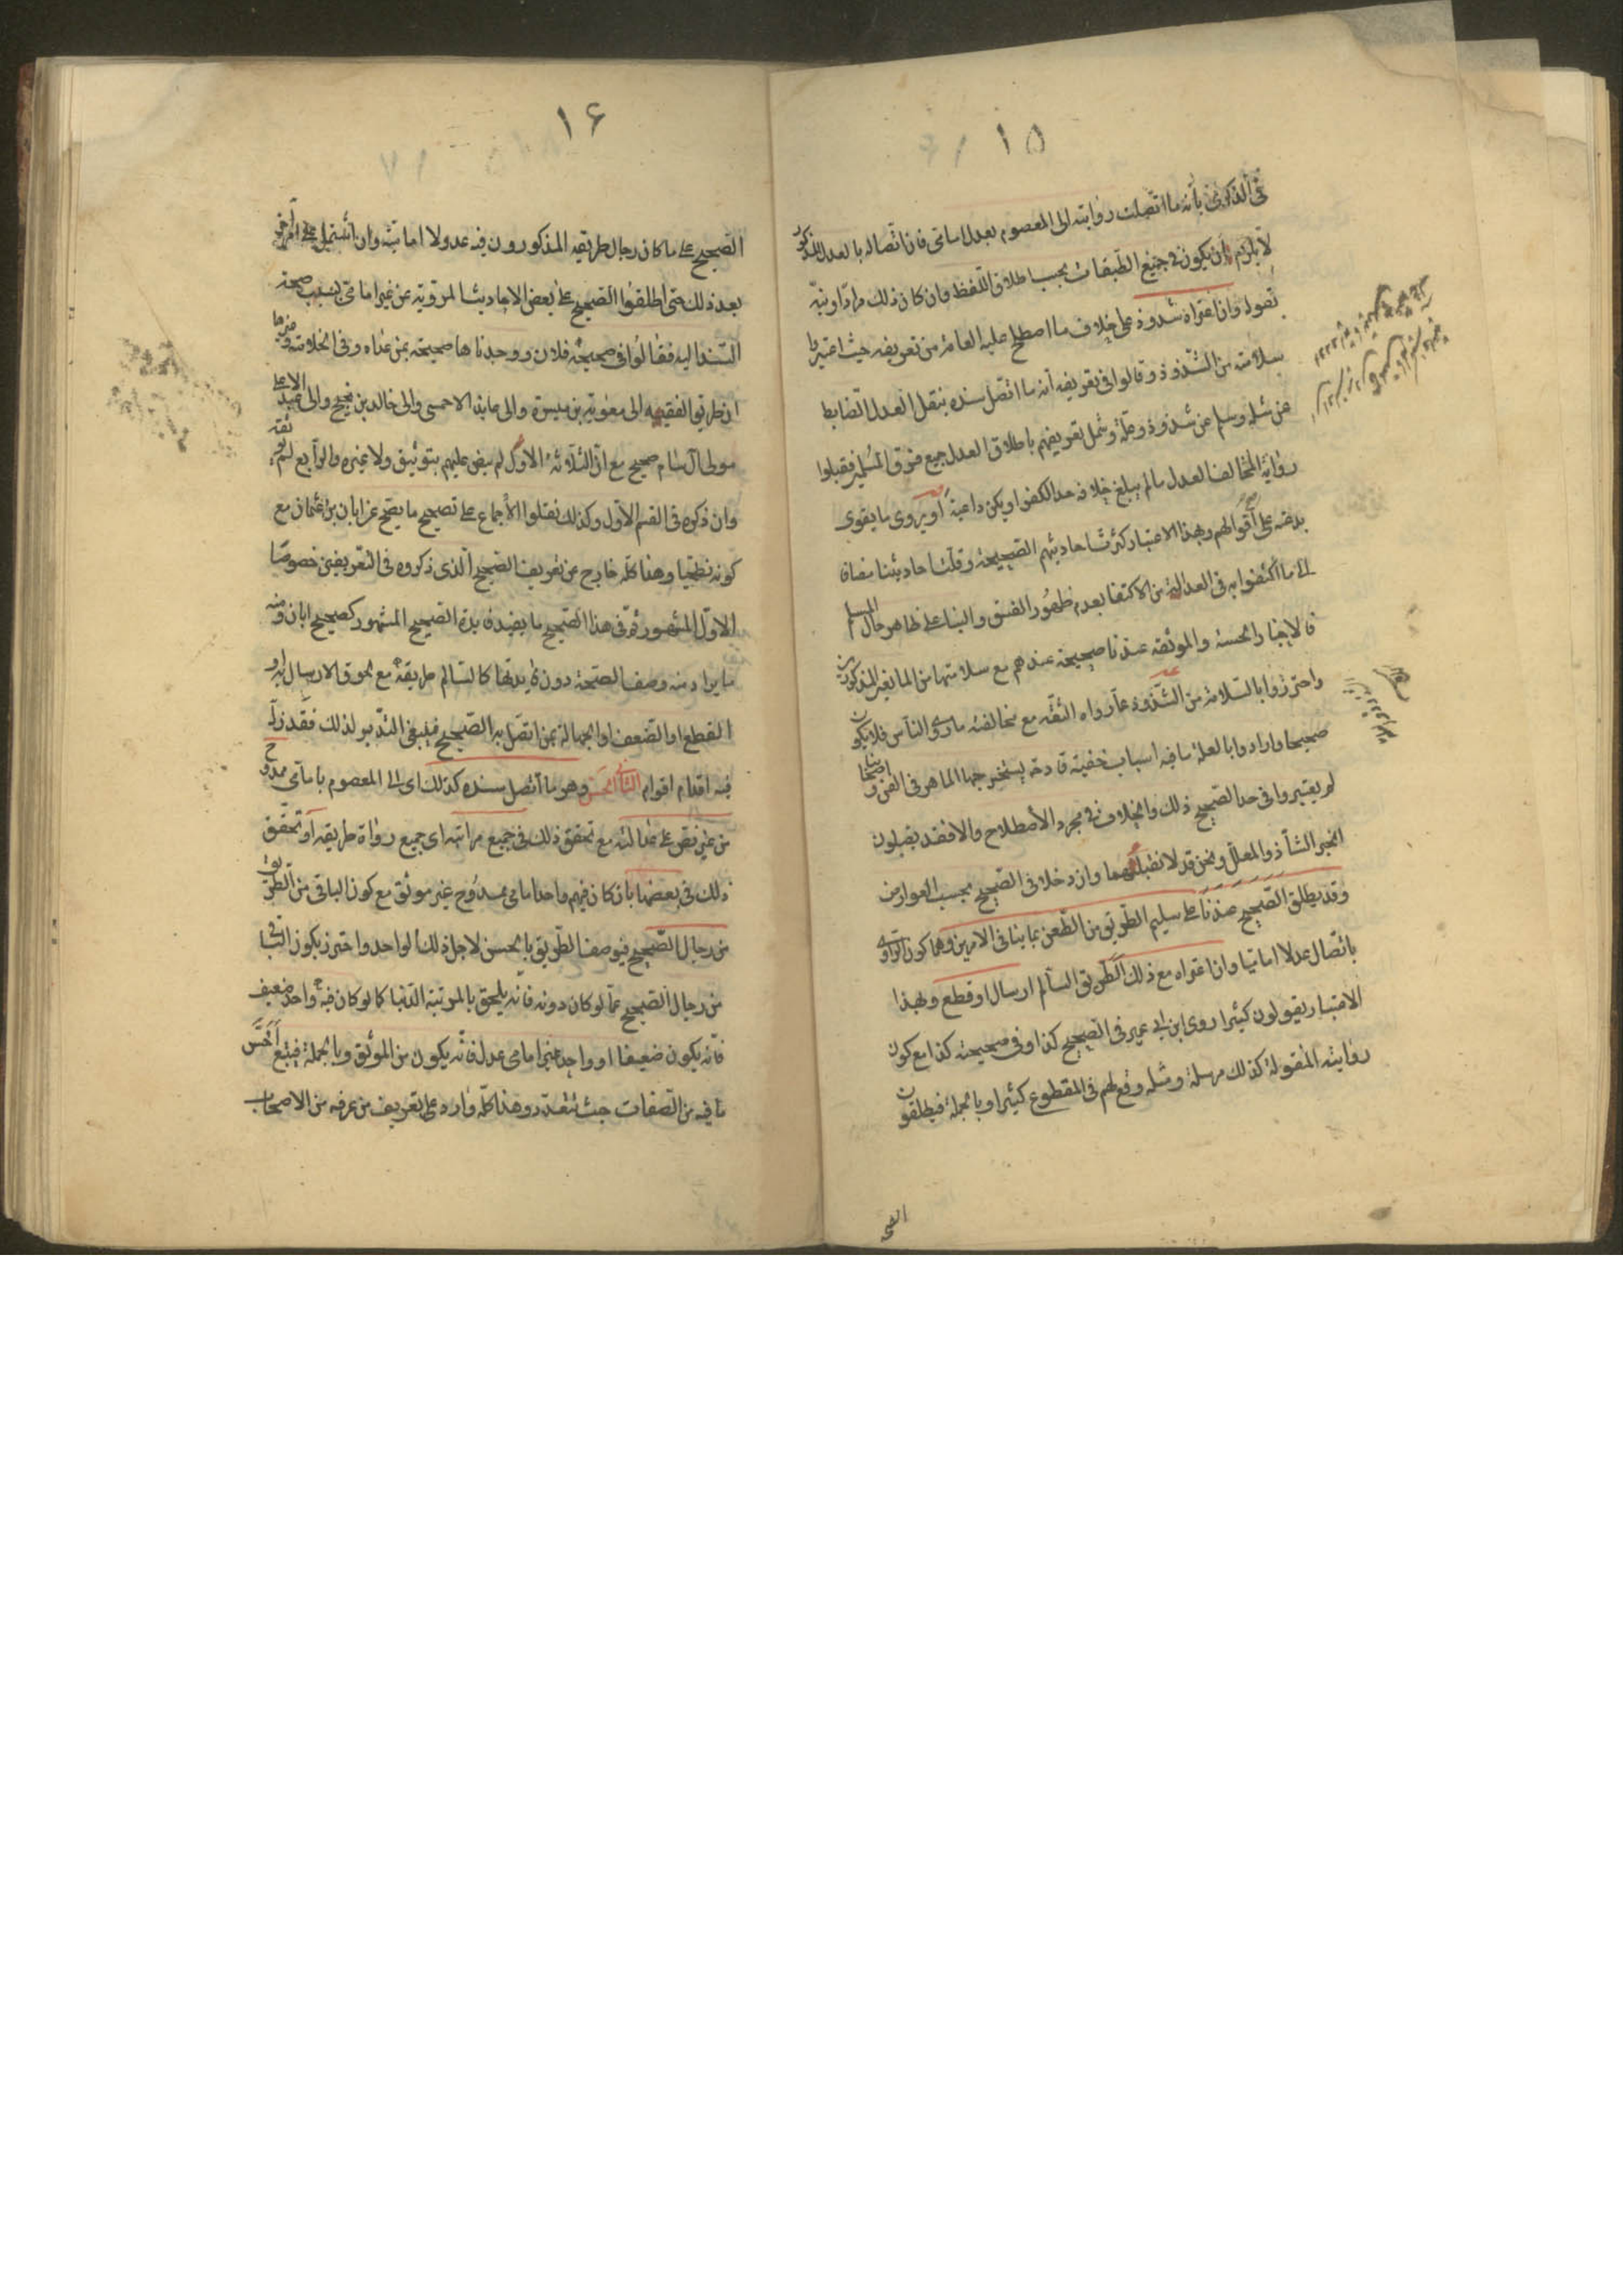 ١٥
فى الذكرى بأنه ما اتصلت روايته الى المعصوم بعدل امامى فان اتصاله بالعدل المذكور
لا يلزم أن يكون فى جميع الطبقات بحسب اطلاق اللفظ وان كان ذلك مرادا ونبه
بقوله وان اعتراه شذوذ على خلاف ما اصطلح عليه العامة من تعريفه حيث اعتبروا
سلامته من الشذوذ وقالوا فى تعريفه انه ما اتصل سنده بنقل العدل الضابط
عن مثله وسلم عن شذوذ وعلة وشمل تعريفهم باطلاق العدل جميع فرق المسلمين فقبلوا
رواية المخالف العدل ما لم يبلغ خلافه حد الكفر او يكن داعية او يروى ما يقوى
بدعته على أقوالهم وبهذا الاعتبار كثرت احاديثهم الصحيحة وقلت احاديثنا مضافا
الى ما اكتفوا به فى العدالة من الاكتفا بعدم ظهور الفسق والبنا على ظاهر حال المسلم
فالاخبار الحسنة والموثقة عندنا صحيحة عندهم مع سلامتها من المانعين المذكورين
واحترزوا بالسلامة من الشذوذ عما رواه الثقة مع مخالفته ما روى الناس فلا يكون
صحيحا وارادوا بالعلة ما فيه اسباب خفية قادحة يستخرجها الماهر فى الفن واصحابنا
لم يعتبروا فى حد الصحيح ذلك والخلاف فى مجرد الاصطلاح والا فقد يقبلون
الخبر الشاذ والمعلل ونحن قد لا نقبلهما وان دخلا فى الصحيح بحسب العوارض
وقد يطلق الصحيح عندنا على سليم الطريق من الطعن بما ينافى الامرين وهما كون الراوى
باتصال عدلا اماميا وان اعتراه مع ذلك الطريق السالم ارسال او قطع وبهذا
الاعتبار يقولون كثيرا روى ابن ابى عمير فى الصحيح كذا وفى صحيحته كذا مع كون
روايته المنقولة كذلك مرسلة ومثله وقع لهم فى المقطوع كثيرا وبالجملة فيطلقون
الصحيح
١٦
الصحيح على ما كان رجال طريقه المذكورون فيه عدولا امامية وان اشتمل على امر اخر
بعد ذلك حتى اطلقوا الصحيح على بعض الاحاديث المروية عن غير امامى بسبب صحة
السند اليه فقالوا فى صحيحة فلان ووجدناها صحيحة بمن عداه وفى الخلاصة وغيرها
ان طريق الفقيه الى معوية بن ميسرة والى عايذ الاحمسى والى خالد بن نجيح والى عبد الاعلى
مولى آل سام صحيح مع ان الثلاثة الاول لم ينص عليهم بتوثيق ولا غيره والرابع لم يوثقه
وان ذكره فى القسم الاول وكذلك نقلوا الاجماع على تصحيح ما يصح عن ابان بن عثمان مع
كونه فطحيا وهذا كله خارج عن تعريف الصحيح الذى ذكروه فى التعريفين خصوصا
الاول المشهور ثم فى هذا الصحيح ما يفيد فايدة الصحيح المشهور كصحيح ابان ومنه
ما يراد منه وصف الصحة دون فايدتها كالسالم طريقه مع لحوق الارسال به او
القطع او الضعف او الجهالة بمن اتصل به الصحيح فينبغى التدبر لذلك فقد زل
فيه اقدام اقوام الثانى الحسن وهو ما اتصل سنده كذلك اى الى المعصوم بامامى ممدوح
من غير نص على عدالته مع تحقق ذلك فى جميع مراتبه اى جميع رواة طريقه او تحقق
ذلك فى بعضها بان كان فيهم واحد امامى ممدوح غير موثق مع كون الباقى من الطريق
من رجال الصحيح فيوصف الطريق بالحسن لاجل ذلك الواحد واحترز بكون الباقى
من رجال الصحيح عما لو كان دونه فانه يلحق بالمرتبة الدنيا كما لو كان فيه واحد ضعيف
فانه يكون ضعيفا او واحد غير امامى عدل فانه يكون من الموثق وبالجملة فيتبع اخس
ما فيه من الصفات حيث تتعدد وهذا كله وارد على تعريف من عرفه من الاصحاب